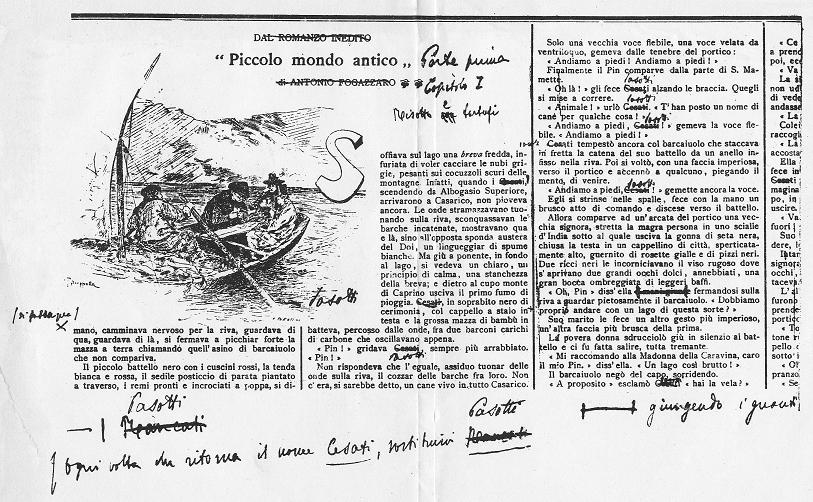 DAL ROMANZO INEDITO
“ Piccolo mondo antico „ Parte prima
di ANTONIO FOGAZZARO Capitolo I
Risotto e tartufi
S
offiava sul lago una breva fredda, in-
furiata di voler cacciare le nubi gri-
gie, pesanti sui cocuzzoli scuri delle
montagne. Infatti, quando i Cesati,
scendendo da Albogasio Superiore,
arrivarono a Casarico, non pioveva
ancora. Le onde stramazzavano tuo-
nando sulla riva, sconquassavan le
barche incatenate, mostravano qua
e là, sino all'opposta sponda austera
del Doi, un lingueggiar di spume
bianche. Ma giù a ponente, in fondo
al lago, si vedeva un chiaro, un
principio di calma, una stanchezza
della breva; e dietro al cupo monte
di Caprino usciva il primo fumo di
pioggia. Cesati, in soprabito nero di
cerimonia, col cappello a staio in
testa e la grossa mazza di bambù in
Pasotti
mano, camminava nervoso per la riva, guardava di
qua, guardava di là, si fermava a picchiar forte la
mazza a terra chiamando quell'asino di barcaiuolo
che non compariva.
Il piccolo battello nero con i cuscini rossi, la tenda
bianca e rossa, il sedile posticcio di parata piantato
a traverso, i remi pronti e incrociati a poppa, si di-
batteva, percosso dalle onde, fra due barconi carichi
di carbone che oscillavano appena.
« Pin! » gridava Cesati, sempre più arrabbiato.
« Pin! » Pasotti
Non rispondeva che l'eguale, assiduo tuonar delle
onde sulla riva, il cozzar delle barche fra loro. Non
c'era, si sarebbe detto, un cane vivo in tutto Casarico.
Solo una vecchia voce flebile, una voce velata da
ventriloquo, gemeva dalle tenebre del portico:
« Andiamo a piedi! Andiamo a piedi! »
Finalmente il Pin comparve dalla parte di S. Ma-
mette. Pasotti
« Oh là! » gli fece Cesati alzando le braccia. Quegli
si mise a correre. Pasotti
« Animale! » urlò Cesati. « T'han posto un nome di
cane per qualche cosa! » Pasotti
« Andiamo a piedi, Cesati! » gemeva la voce fle-
bile. « Andiamo a piedi! »
Cesati tempestò ancora col barcaiuolo che staccava
in fretta la catena del suo battello da un anello in-
fisso nella riva. Poi si voltò, con una faccia imperiosa,
verso il portico e accennò a qualcuno, piegando il
mento, di venire. Pasotti
« Andiamo a piedi, Cesati! » gemette ancora la voce.
Egli si strinse nelle spalle, fece con la mano un
brusco atto di comando e discese verso il battello.
Allora comparve ad un'arcata del portico una vec-
chia signora, stretta la magra persona in uno scialle
d'India sotto al quale usciva la gonna di seta nera,
chiusa la testa in un cappellino di città, sperticata-
mente alto, guernito di rosette gialle e di pizzi neri.
Due ricci neri le incorniciavano il viso rugoso dove
s'aprivano due grandi occhi dolci, annebbiati, una
gran bocca ombreggiata di leggeri baffi.
« Oh, Pin » diss'ella fermandosi sulla
riva a guardar pietosamente il barcaiuolo. « Dobbiamo
proprio andare con un lago di questa sorte? »
Suo marito le fece un altro gesto più imperioso,
un'altra faccia più brusca della prima.
La povera donna sdrucciolò giù in silenzio al bat-
tello e ci fu fatta salire, tutta tremante.
« Mi raccomando alla Madonna della Caravina, caro
il mio Pin. » diss'ella. « Un lago così brutto! »
Il barcaiuolo negò del capo, sorridendo.
« A proposito » esclamò Cesati « hai la vela? »
giungendo i guanti
Pasotti
Pasotti
ogni volta che ritorna il nome Cesati, sostituire